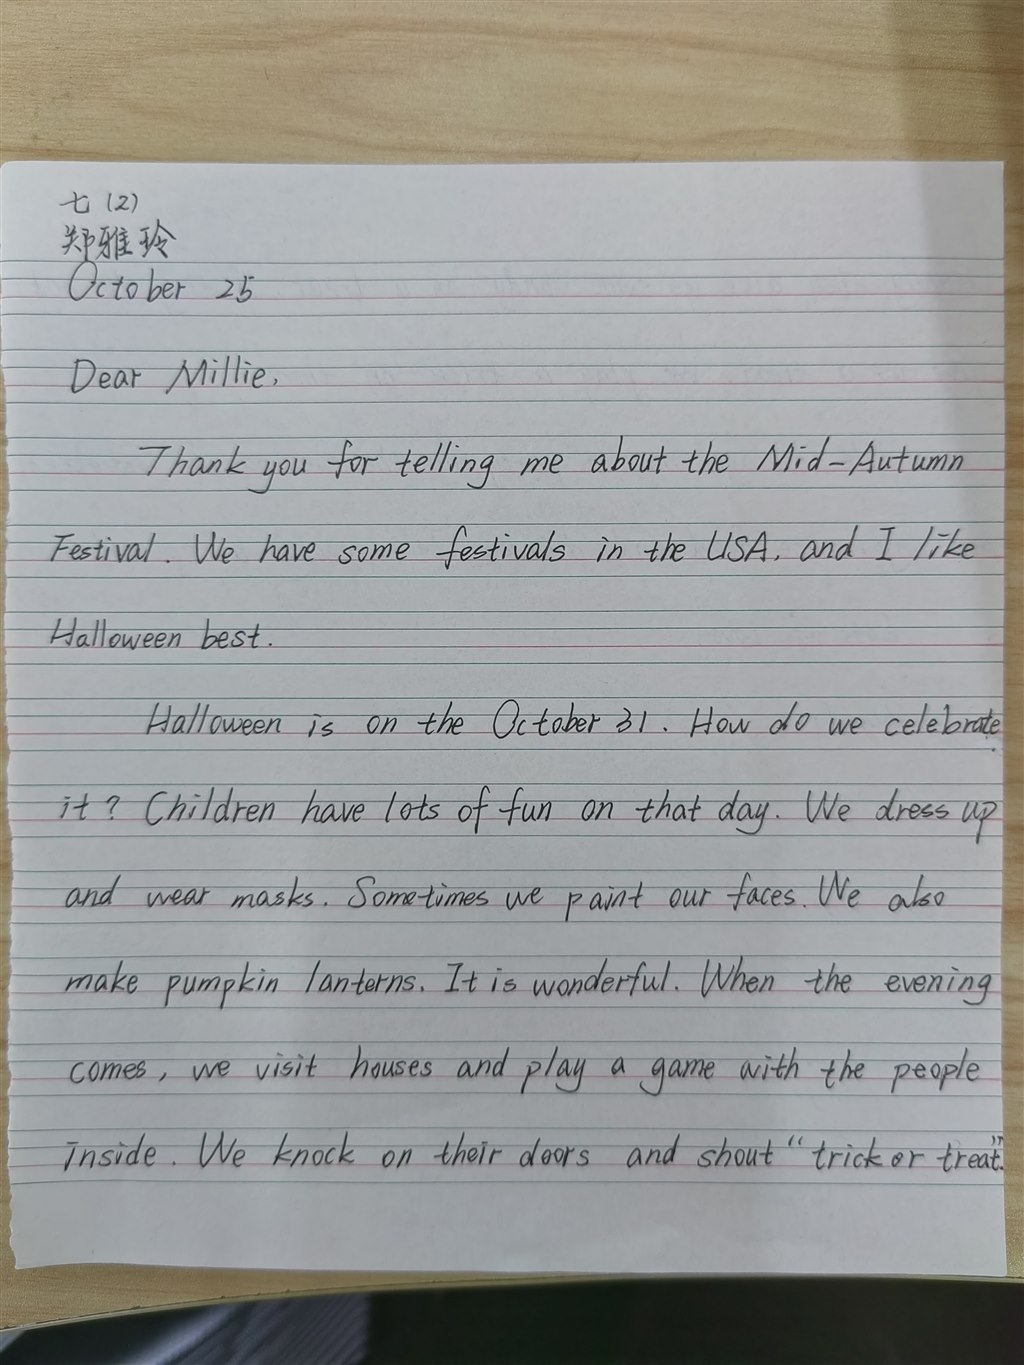 七(2)
郑雅玲
October 25
Dear Millie,
Thank you for telling me about the Mid-Autumn
Festival. We have some festivals in the USA, and I like
Halloween best.
Halloween is on the October 31. How do we celebrate
it? Children have lots of fun on that day. We dress up
and wear masks. Sometimes we paint our faces. We also
make pumpkin lanterns. It is wonderful. When the evening
comes, we visit houses and play a game with the people
inside. We knock on their doors and shout “trick or treat”.